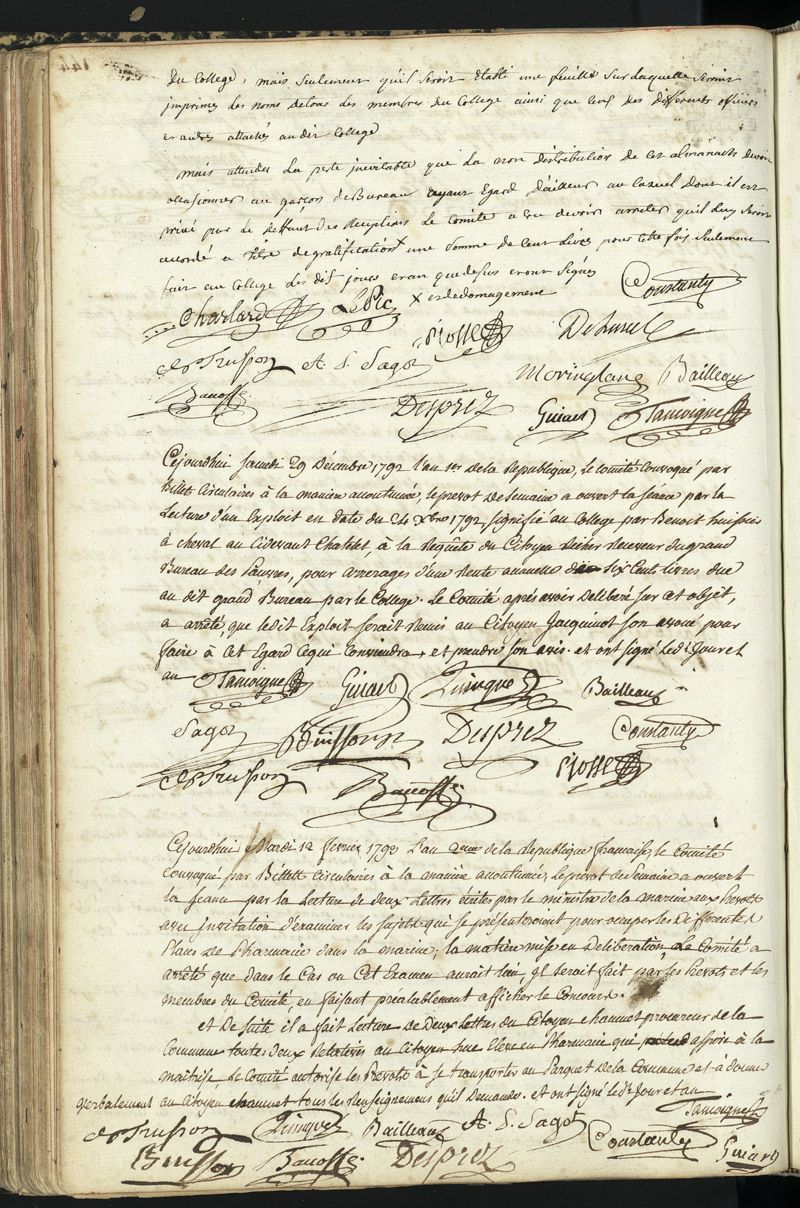 Du College, mais Seulement qu'il Seroit Etabli une feuille Sur Laquelle Seroient
imprimes Les noms de tous Les membres du College ainsi que Ceux des differents officiers
et autres attachés au dit College
Mais attendu La perte inevitable que La non distribution de Ces almanachs devoit
occasionner au garçon de Bureau ayant Egard D'ailleurs au Casuel dont il est
privé par Le deffaut des Receptions Le Comité a Cru devoir arreter qu'il Luy Seroit
accordé a titre de gratification x une Somme de Cent Livres pour Cette fois Seulement
fait au College Les dit jours et an que dessus et ont Signés
x et dedomagement
Constanty
Charlard LePic
Trusson A. S. Sagot Rosse Dehansle
Moringlane Bailleau
Bacoffe Desprez Guiart Tamoigne
Cejourdhui Samedi 29 Décembre 1792 l'an 1er de la Republique, le Comité Convoqué par
Billets Circulaires à la manière accoutumée, le prevot de Semaine a ouvert la Séance par la
Lecture d'un Exploit en date du 24 Xbre 1792, Signifié au College par Benoit huissier
à cheval au Cidevant Chatelet, à la Requête du Citoyen Receveur du grand
Bureau des Pauvres, pour arrerages d'une Rente annuelle de Six Cents livres due
au dit grand Bureau par le College. Le Comité après avoir Deliberé Sur cet objet,
a arrêté, que le dit Exploit Serait Remis au Citoyen Jacquinot Son avoué pour
faire à Cet Egard Ce qui Conviendra, et prendre Son avis. et ont signé Le dt Jour et
an Tamoigne Guiart Quinquet Bailleau
Sagot Buisson Desprez Constanty
Trusson Bacoffe Rosse
Cejourdhui Mardi 12 fevrier 1793 L'an 2eme de la Republique françaises, le Comité
Convoqué par Billets Circulaires à la manière accoutumée, le prévot de Semaine a ouvert
la Seance par la Lecture de deux Lettres écrites par le ministre de la marine aux Prevots
avec invitation d'examiner les Sujets qui se présenteroient pour occuper les Differentes
Places de Pharmacie dans la marine; la matière mise en Deliberation, Le Comité a
arrêté que dans le Cas ou Cet Examen aurait lieu, il Seroit fait par les Prevots et les
membres du Comité, en faisant prealablement afficher le Concours.
et De Suite il a fait Lecture de Deux Lettres du Citoyen Chaumet procureur de la
Commune toutes deux Relatives au Citoyen hue Eleve en Pharmacie qui aspire à la
maitrise. Le Comité autorise les Prevots à se transporter au Parquet de la Commune et à donner
verbalement au Citoyen Chaumet tous les Renseignemens qu'il Demande. et ont signé le dt Jour et an
Tamoigne
Trusson Quinquet Bailleau A. S. Sagot Constanty Guiart
Buisson Bacoffe Desprez